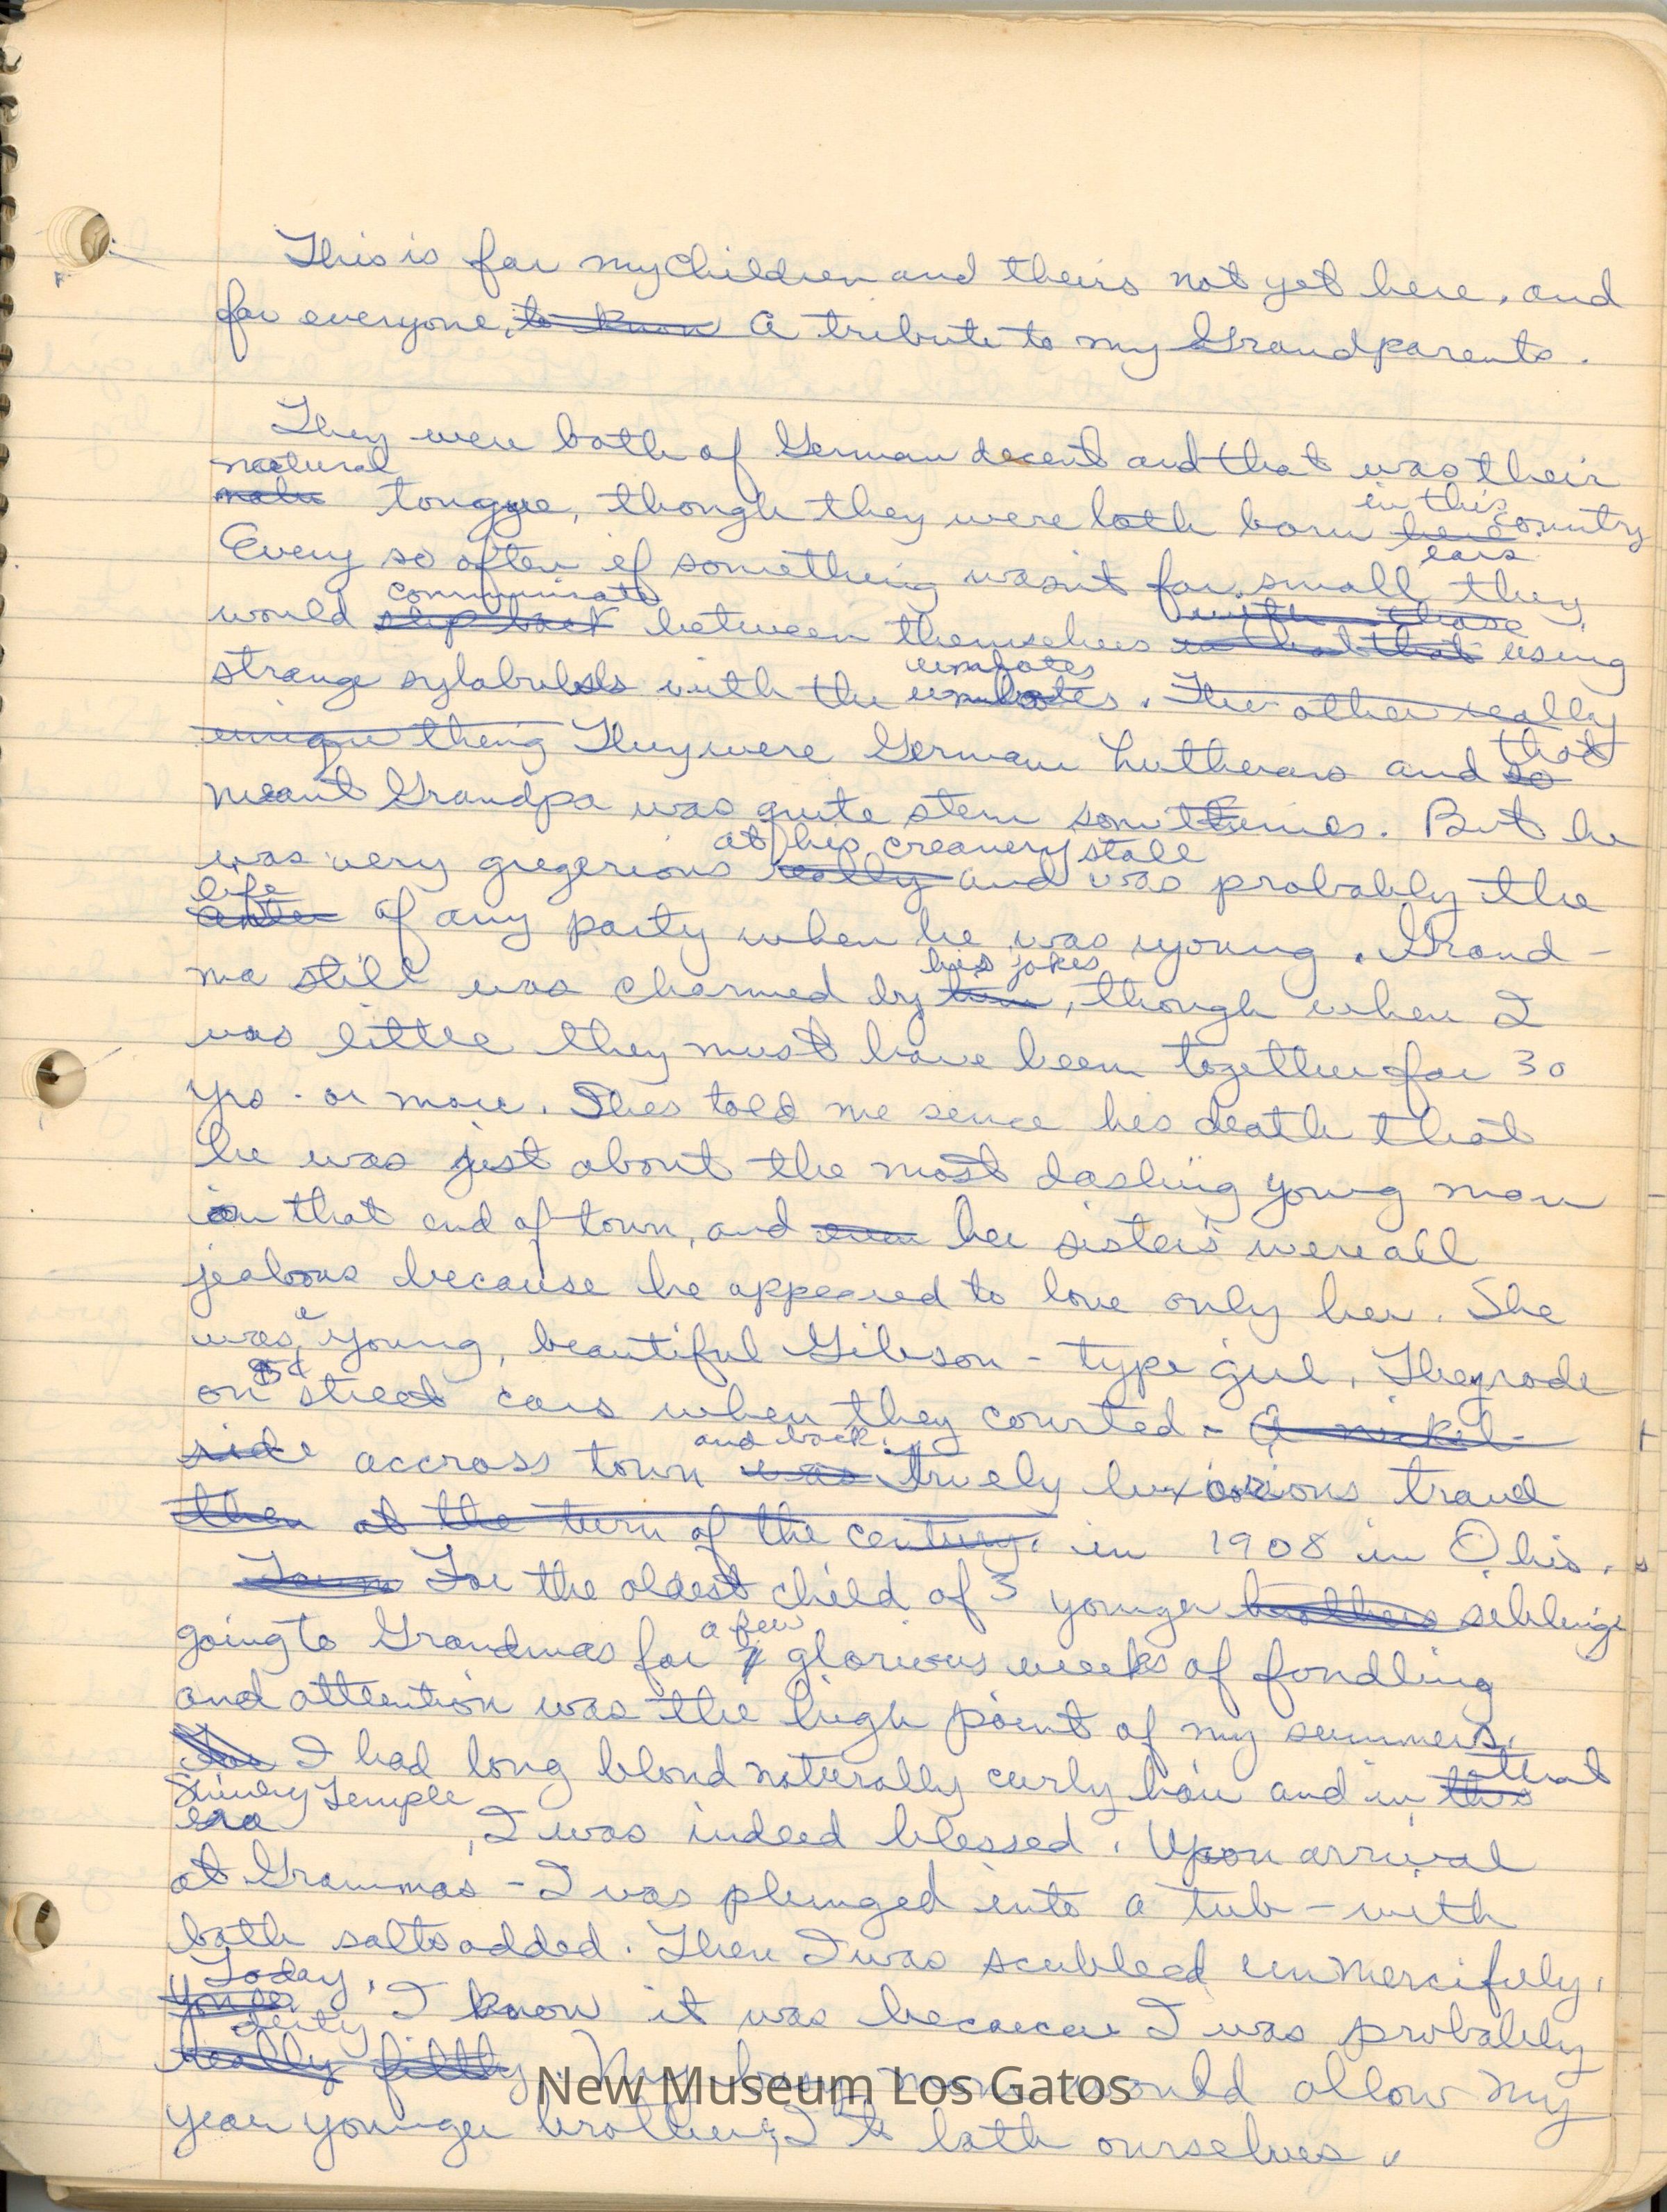 This is for my children and theirs not yet here, and
for everyone, to know A tribute to my Grandparents.
They were both of German decent and that was their
natural
tongue, though they were both born here in this country
Every so often if something wasn't for small ears they
communicate
would slip back between themselves with those using
strange sylabulels with the umlotes. The other really
unique thing They were German Lutherans and so that
meant Grandpa was quite stern sometimes. But he
at his creamery stall
was very gregerious really and was probably the
life
of any party when he was young. Grand-
his jokes
ma still was charmed by him, though when I
was little they must have been together for 30
yrs. or more. Shes told me sence his death that
he was just about the most dashing young man
in that end of town, and even her sisters were all
jealous because he appeared to love only her. She
was a young, beautiful Gibson-type girl. They rode
on street cars when they courted - A nickel
and back.
side accross town was truely luxorious travel
then at the turn of the century. in 1908 in Ohio.
For the oldest child of 3 younger brothers siblings
a few
going to Grandmas for glorious weeks of fondling
and attention was the high point of my summers.
I had long blond naturally curly hair and in this that
Shirley Temple
era, I was indeed blessed. Upon arrival
at Grammas - I was plunged into a tub - with
bath salts added. Then I was scubbed unmercifuly.
Today,
I know it was because I was probably
dirty
really filthy. My busy mom would allow my
year younger brother & I to bath ourselves.
New Museum Los Gatos